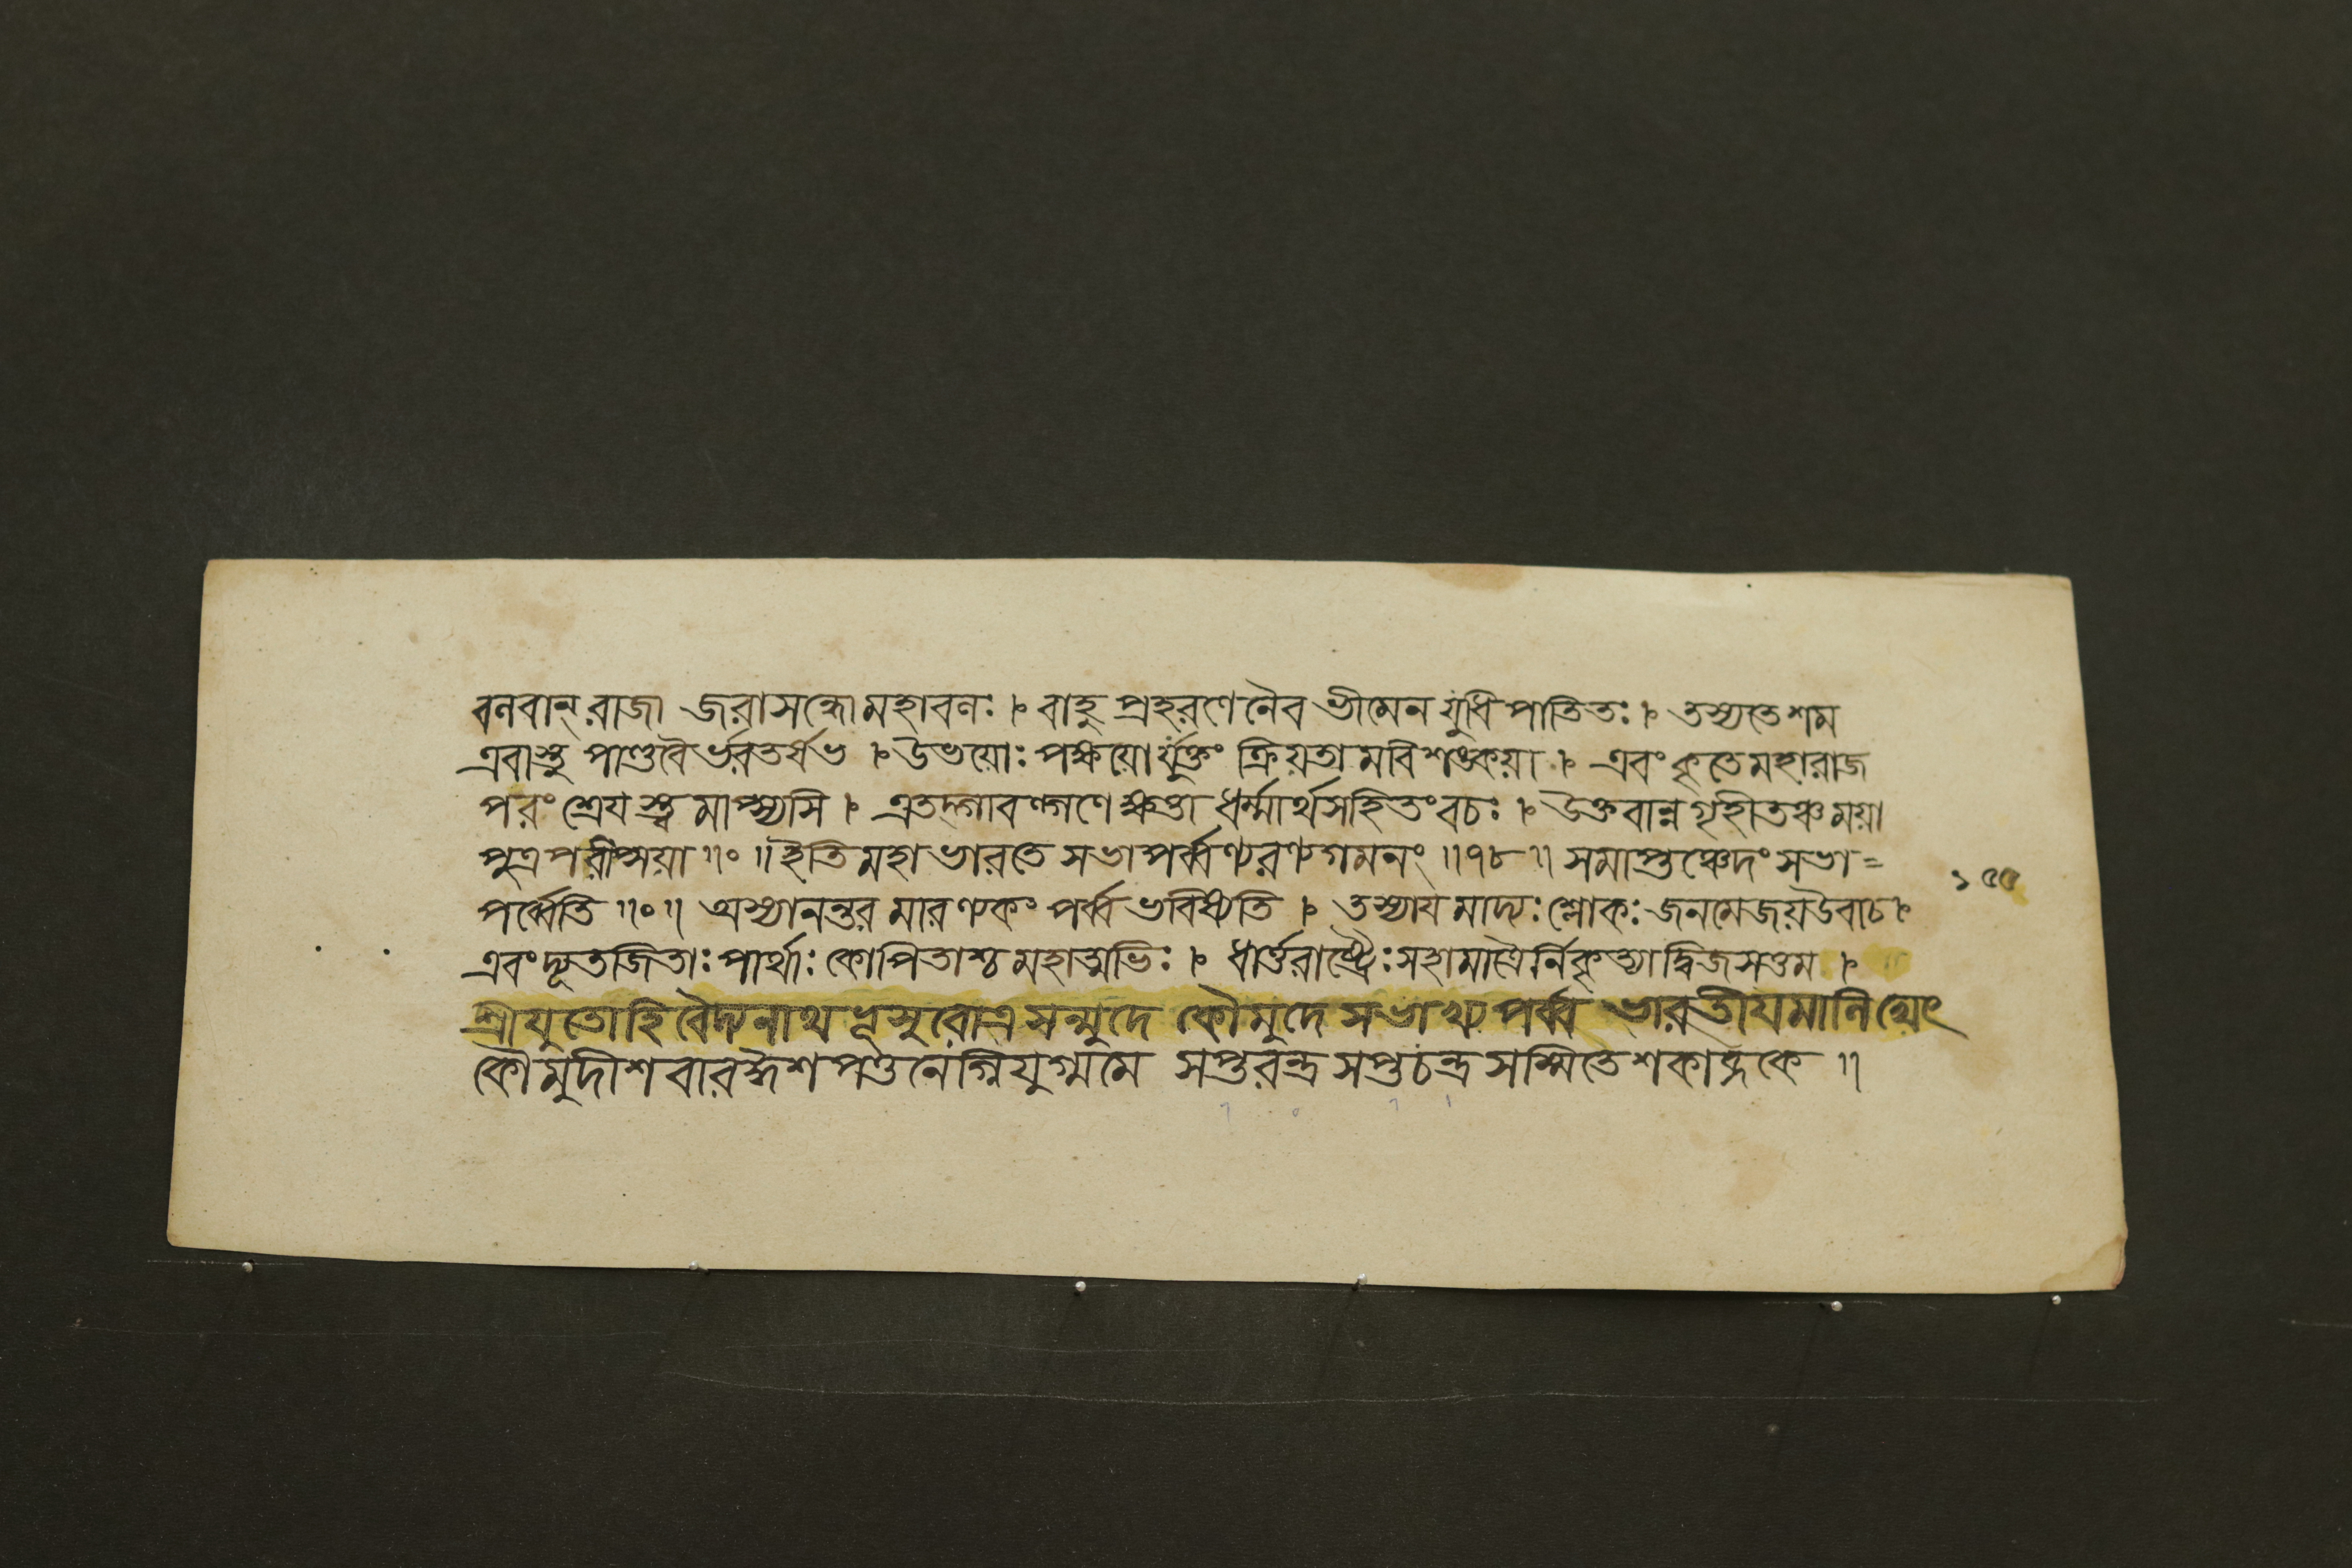 বলবান্ রাজা জরাসন্ধোমহাবলঃ । বাহু প্রহরণেনৈব ভীমেন যুধি পাতিতঃ । তস্যতেশম
এবাস্তু পাণ্ডবৈর্ভরতর্ষভ । উভয়োঃ পক্ষয়োর্যুক্তং ক্রিয়তামবিশঙ্কয়া । এবংকৃতেমহারাজ
পরং শ্রেয়স্ত্বমাপ্স্যসি । এতদ্গাবল্গণে ক্ষত্তা ধর্ম্মার্থসহিতংবচঃ । উক্তবান্নগৃহীতঞ্চময়া
পুত্রপরীপ্সয়া ॥০॥ ইতিমহাভারতে সভাপর্ব্বণ্যরণ্যগমনং ॥৭৮॥ সমাপ্তঞ্চেদং সভা=
পর্ব্বেতি ॥০॥ অস্যানন্তরমারণ্যকং পর্ব্ব ভবিষ্যতি । তস্যায়মাদ্যঃশ্লোকঃ জনমেজয়উবাচ ।
১৫৫
এবংদ্যূতজিতাঃ পার্থাঃ কোপিতাশ্চ মহাত্মভিঃ । ধার্ত্তরাষ্ট্রৈঃসহামাত্যৈর্নিকৃত্যাদ্বিজসত্তম ।
শ্রীযুতোহি বৈদ্যনাথ সন্মুদে কৌমুদে সভাখ্যপর্ব্ব ভারতীয়মালিখেৎ
কৌমুদীশবার সপ্তরন্ধ্রসপ্তচন্দ্রসম্মিতেশকাব্দকে ॥